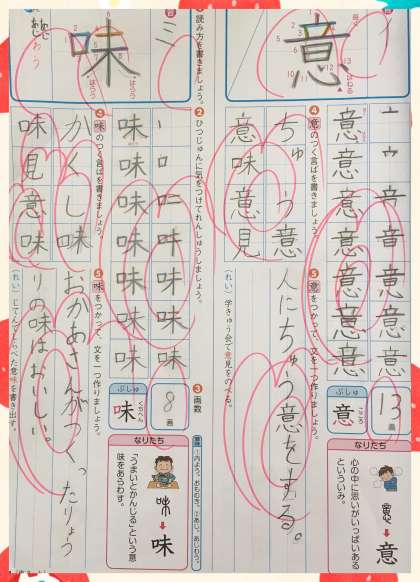 意
❹意のつく言ばを書きましょう。
ちゅう意
意味
意見
意意意意意意
❺意をつかって、文を一つ作りましょう。
(れい) 学きゅう会で意見をのべる。
人にちゅう意をする。
13画
ぶしゅ
意
こころ
なりたち
心の中に思いがいっぱいある
といういみ。
意
味
ミ
❶読み方を書きましょう。
❷ひつじゅんに気をつけてれんしゅうしましょう。
味味味味味味味
❸画数
8画
ぶしゅ
味
くちへん
❹味のつく言ばを書きましょう。
かくし味
味見
意味
❺味をつかって、文を一つ作りましょう。
おかあさんがつくったりょう
りの味はおいしい。
なりたち
「うまいとかんじる」という意
味をあらわす。
味